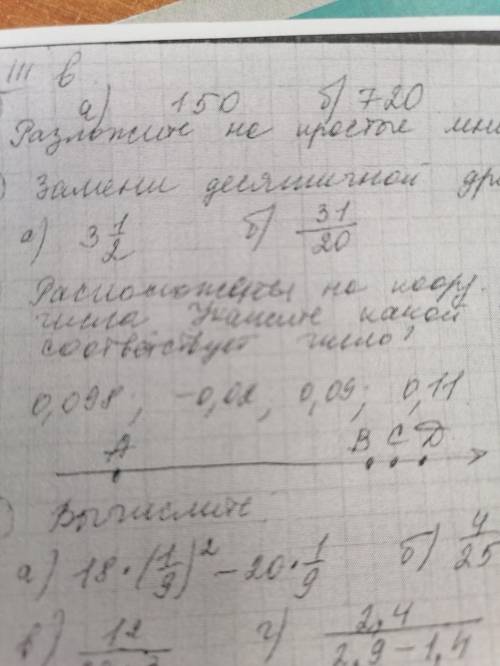 III в
а) 150 б) 720
Разложите на простые мно
Замени десятичной дро
а) 3 1/2 б) 31/20
Расположены на коор.
числа Укажите какой
соответствует число?
0,098; -0,02, 0,09; 0,11
A B C D
Вычислите
а) 18 · (1/9)² - 20 · 1/9 б) 4/25
в) 12 г) 2,4 / 2,9 - 1,4